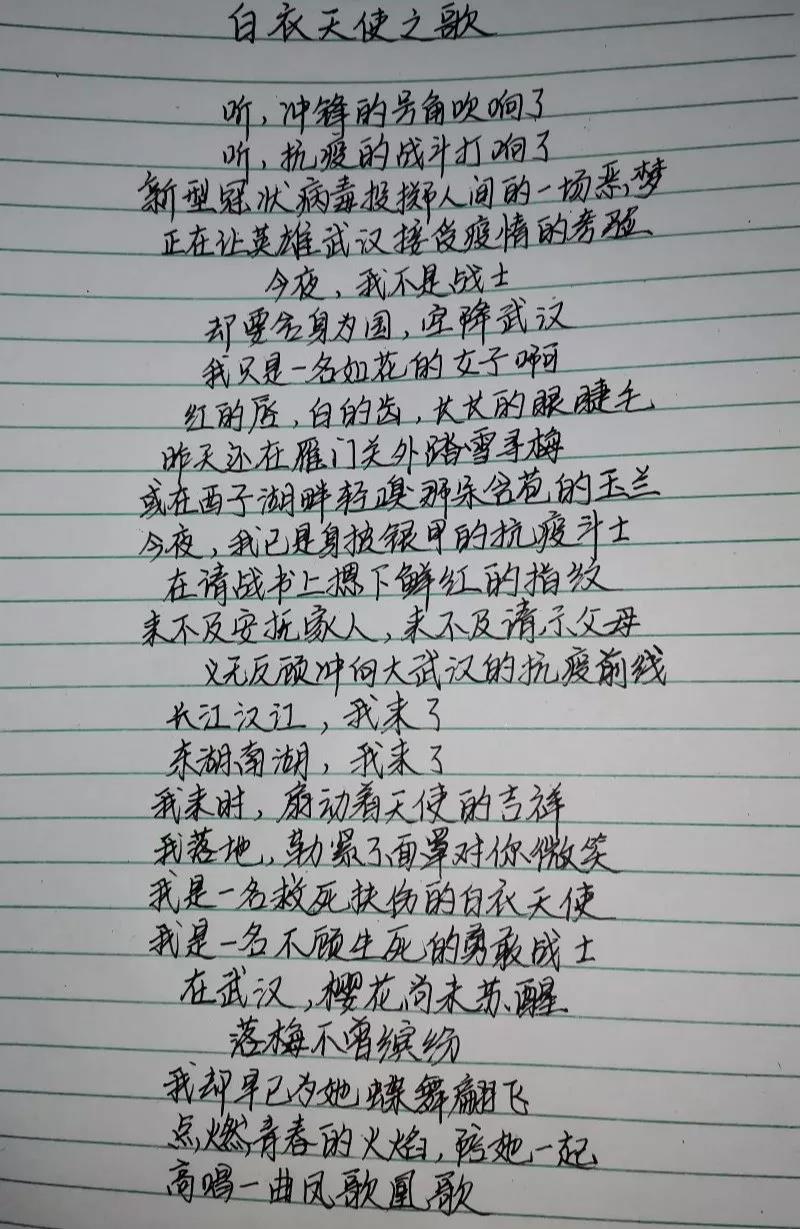 白衣天使之歌
听，冲锋的号角吹响了
听，抗疫的战斗打响了
新型冠状病毒投掷人间的一场恶梦
正在让英雄武汉接受疫情的考验
今夜，我不是战士
却要舍身为国，空降武汉
我只是一名如花的女子啊
红的唇，白的齿，长长的眼睫毛
昨天还在雁门关外踏雪寻梅
或在西子湖畔轻嗅那朵含苞的玉兰
今夜，我已是身披银甲的抗疫斗士
在请战书上摁下鲜红的指纹
来不及安抚家人，来不及请示父母
义无反顾冲向大武汉的抗疫前线
长江汉江，我来了
东湖南湖，我来了
我来时，扇动着天使的吉祥
我落地，勒紧了面罩对你微笑
我是一名救死扶伤的白衣天使
我是一名不顾生死的勇敢战士
在武汉，樱花尚未苏醒
落梅不曾缤纷
我却早已为她蝶舞翩飞
点燃青春的火焰，陪她一起
高唱一曲凤歌凰歌